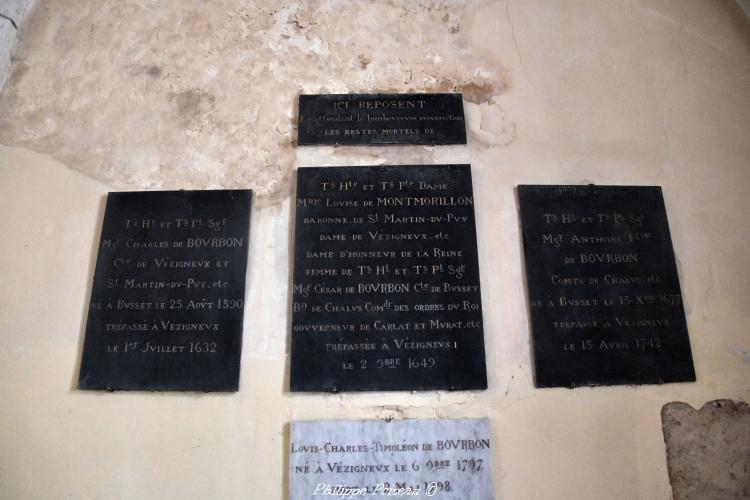 ICI REPOSENT
En attendant la bienheureuse resurrection
LES RESTES MORTELS DE
Ts Ht ET Ts Pt Sgr
Mgr CHARLES DE BOVRBON
Cte DE VÉZIGNEVX ET
St MARTIN-DV-PVY, ETC
NÉ À BVSSET LE 25 AOÛT 1590
TRÉPASSÉ À VÉZIGNEVX
LE 1er JVILLET 1632
Ts Hte ET Ts Pte DAME
Mme LOVISE DE MONTMORILLON
BARONNE DE St MARTIN-DV-PVY
DAME DE VÉZIGNEVX, ETC
DAME D'HONNEUR DE LA REINE
FEMME DE Ts Ht ET Ts Pt Sgr
Mgr CÉSAR DE BOVRBON Cte DE BVSSET
Bn DE CHALVS Comdr DES ORDRES DV ROI
GOVVERNEVR DE CARLAT ET MVRAT, ETC
TRÉPASSÉE À VÉZIGNEVX
LE 2 9BRE 1649.
Ts Ht ET Ts Pt Sgr
Mgr ANTHOINE
DE BOVRBON
COMTE DE CHALVS, ETC
NÉ À BVSSET LE 15 Xbre 1677
TRÉPASSÉ À VÉZIGNEVX
LE 15 AVRIL 1742
LOVIS-CHARLES-TIMOLÉON DE BOVRBON
NÉ À VÉZIGNEVX LE 6 9BRE 1797.
Philippe Poiseau ©